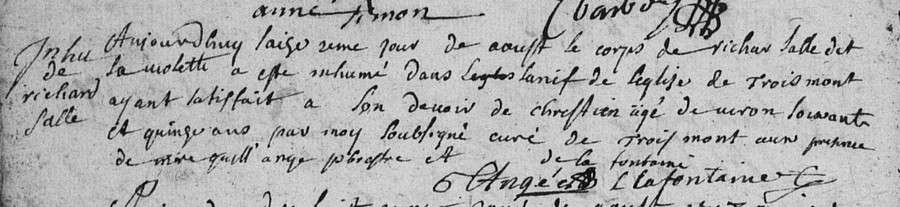 anne Simon
Inhu
de
richard
Salle
Aujourdhuy saize zeme jour de aoust le corps de richar Salle dit
la violette a este inhumé dans lanef de leglise de Troismont
ayant satisfait a Son devoir de chrestien agé de viron soixante
et quinze ans par moy Soubsigné curé de Troismont aux presence
de mire guill ange pbrestre et de la fontaine
G Ange L Lafontaine